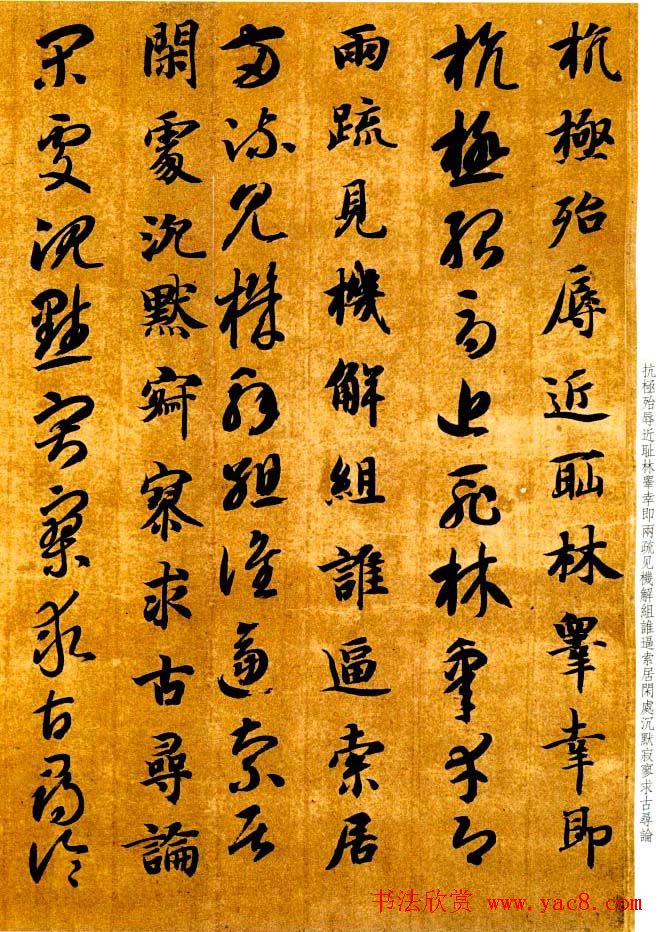 抗極殆辱近耻林睾幸即兩疏见機解組誰逼索居閑處沉默寂寥求古尋論
杭極殆辱近耻林睾幸即
杭極殆辱近耻林睾幸即
兩疏見機解組誰逼索居
兩疏見機解組誰逼索居
閑處沉默寂寥求古尋論
閑處沉默寂寥求古尋論
书法欣赏 www.yac8.com